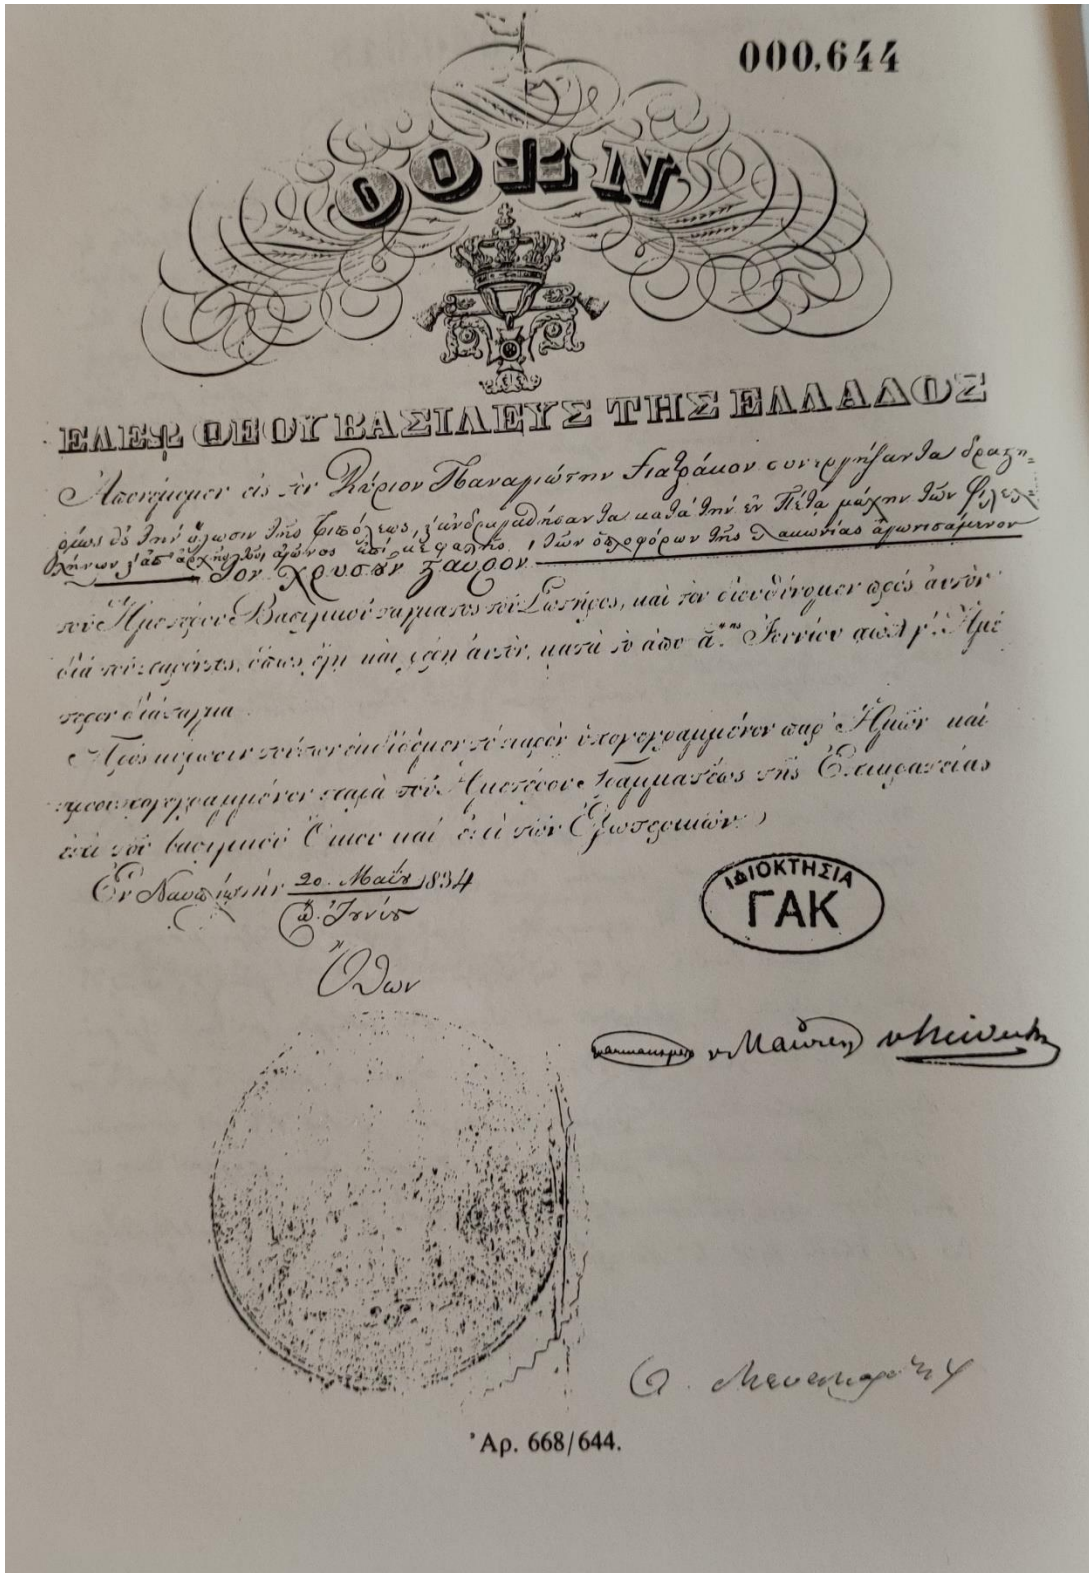 000,644
ΟΘΩΝ
ΕΛΕῼ ΘΕΟΥ ΒΑΣΙΛΕΥΣ ΤΗΣ ΕΛΛΑΔΟΣ
Ἀπονέμομεν εἰς τὸν Κύριον Παναγιώτην Γιατράκον συνεργήσαντα δραστη-
τὴν ἅλωσιν τῆς Τριπόλεως, ἀνδραγαθήσαντα κατὰ τὴν ἐν Πέτα μάχην τῶν Φιλελ-
λήνων ἀγῶνος ἐπὶ κεφαλῆς τῶν ὁπλοφόρων τῆς Λακωνίας ἀγωνισάμενον
Τὸν χρυσοῦν Σταυρὸν
τοῦ Ἡμετέρου Βασιλικοῦ τάγματος τοῦ Σωτῆρος, καὶ τὸν διευθύνομεν πρὸς αὐτὸν
διὰ τοῦ παρόντος, ὅπως ἔχῃ καὶ φέρῃ αὐτὸν, κατὰ τὸ ἀπὸ Ἰουνίου αωλγʹ. Ἡμέ
τερον διάταγμα.
Πρὸς πίστωσιν τούτων ἐκδίδομεν τὸ παρὸν ὑπογεγραμμένον παρ' Ἡμῶν καὶ
προσυπογεγραμμένον παρὰ τοῦ Ἡμετέρου Γραμματέως τῆς Ἐπικρατείας
ἐπὶ τοῦ βασιλικοῦ Οἴκου καὶ ἐπὶ τῶν Ἐξωτερικῶν.
Ἐν Ναυπλίῳ τὴν 20. Μαΐου 1834
Ἰουνίου
Ὄθων
ΙΔΙΟΚΤΗΣΙΑ
ΓΑΚ
Ἀρ. 668/644.